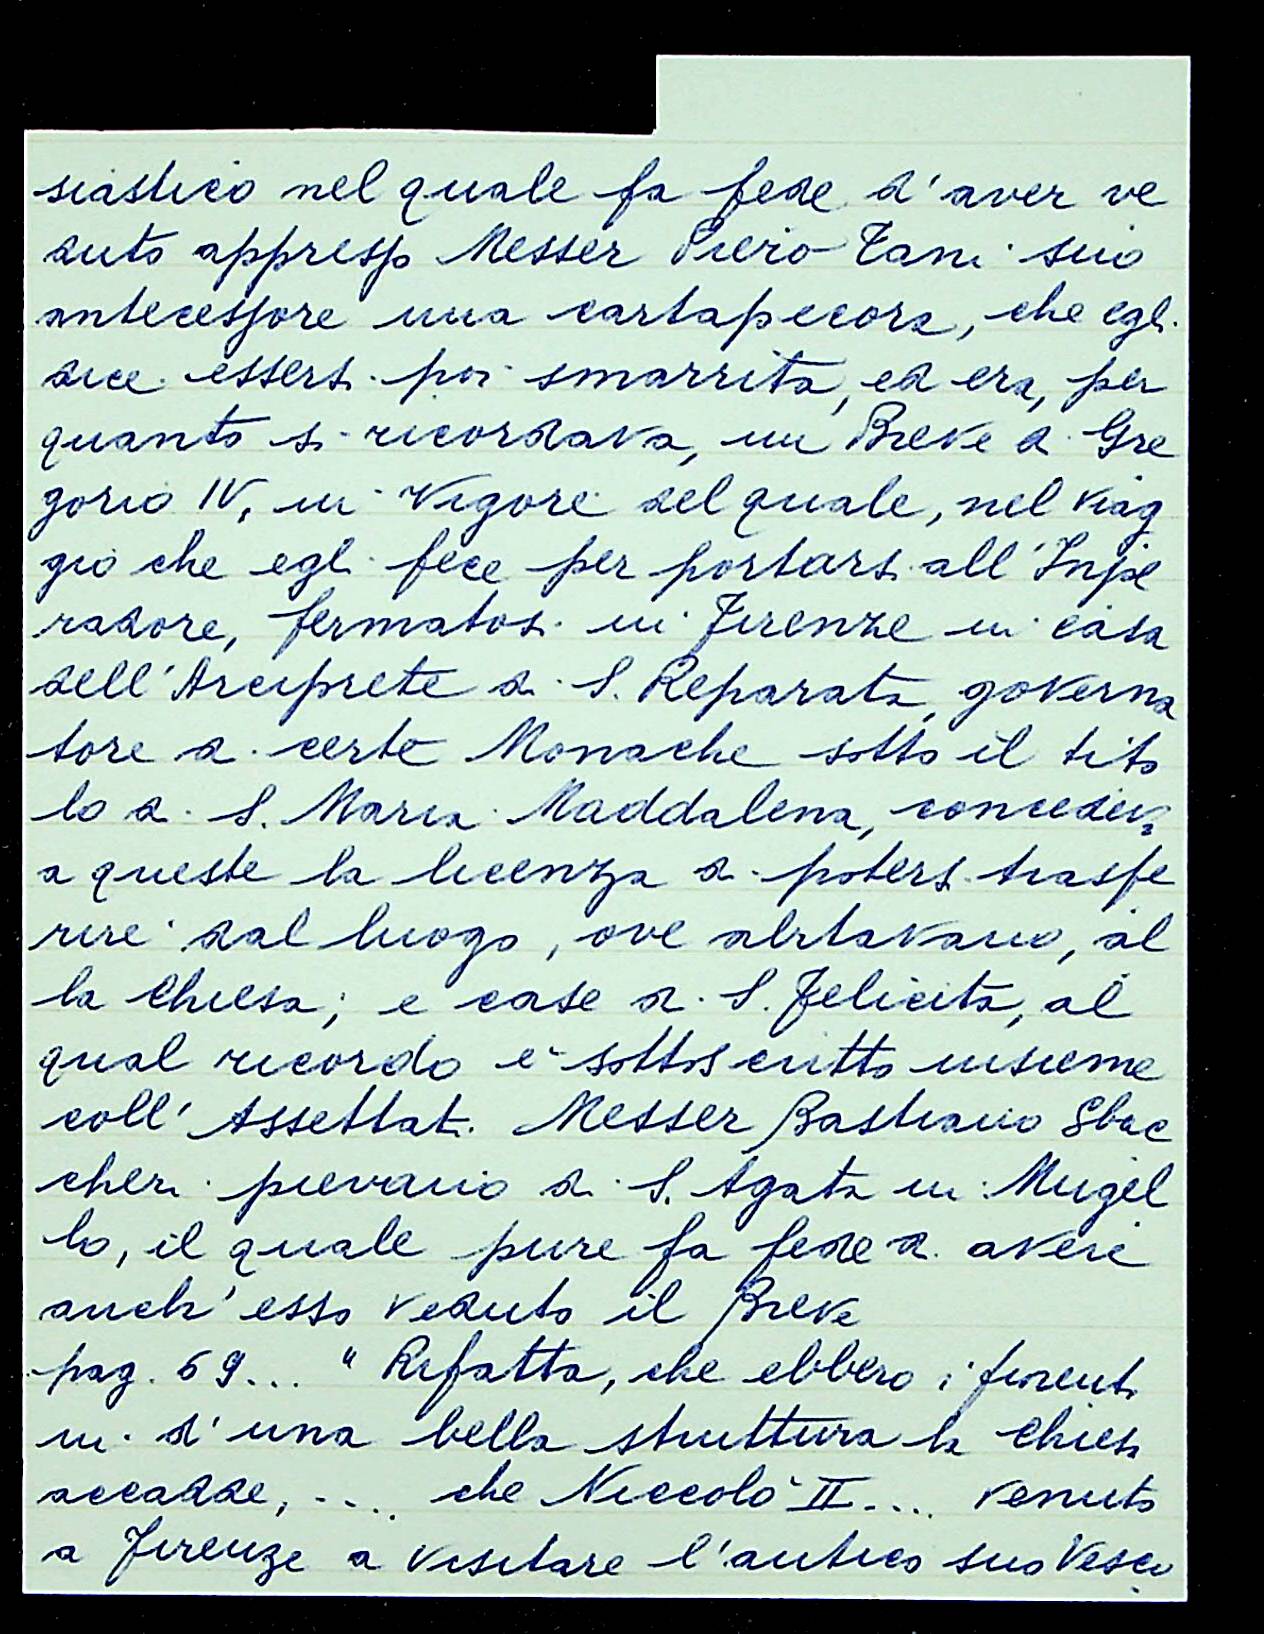 siastico nel quale fa fede d'aver ve
duto appresso Messer Piero Zani suo
antecessore una cartapecora, che egli
dice essersi poi smarrita, ed era, per
quanto si ricordava, un Breve di Gre
gorio IV, in vigore del quale, nel viag
gio che egli fece per portarsi all'Inpe
radore, fermatosi in Firenze in casa
dell'Arciprete di S. Reparata, governa
tore di certe Monache sotto il tito
lo di S. Maria Maddalena, concedeva
a queste la licenza di potersi trasfe
rire dal luogo, ove abitavano, al
la Chiesa; e case di S. Felicita, al
qual ricordo è sottoscritto insieme
coll'Assettati Messer Bastiano Sbac
cheri pievano di S. Agata in Mugel
lo, il quale pure fa fede di avere
anch'esso veduto il Breve
pag. 69... " Rifatta, che ebbero i fiorenti
ni d'una bella struttura la Chiesa
accadde, .... che Niccolò II.... venuto
a Firenze a visitare l'antico suo Vesco